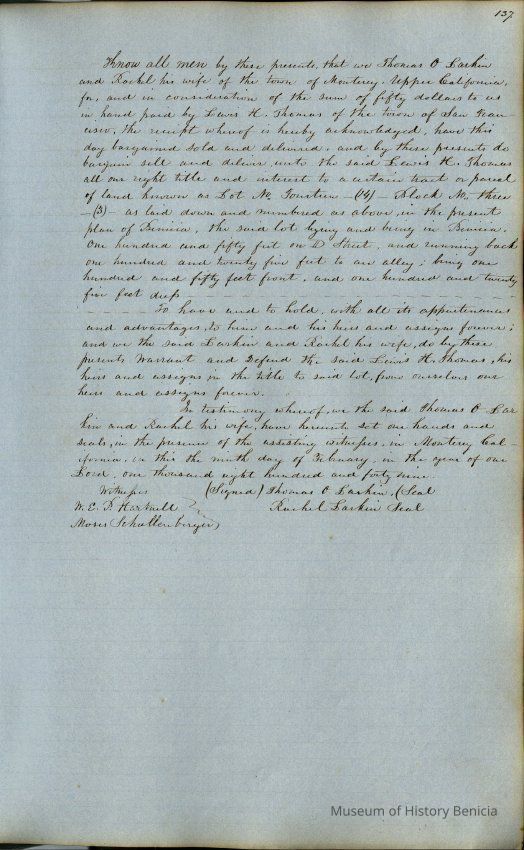 137
Know all men by these presents, that we Thomas O Larkin
and Rachel his wife of the town of Monterey, Upper California,
for, and in consideration of the sum of fifty dollars to us
in hand paid by Lewis H. Thomas of the town of San Fran-
cisco, the receipt whereof is hereby acknowledged, have this
day bargained sold and delivered, and by these presents do
bargain sell and deliver, unto the said Lewis H. Thomas
all our right title and interest to a certain tract or parcel
of land known as Lot No. Fourteen –(14)– Block No. three
–(3)– as laid down and numbered as above, in the present
plan of Benicia, the said lot lying and being in Benicia.
One hundred and fifty feet on D Street, and running back
one hundred and twenty five feet to an alley; being one
hundred and fifty feet front, and one hundred and twenty
five feet deep.
To have and to hold, with all its appurtenances
and advantages, to him and his heirs and assigns forever;
and we the said Larkin and Rachel his wife, do by these
presents Warrant and Defend the said Lewis H. Thomas, his
heirs and assigns in the title to said lot, from ourselves our
heirs and assigns forever.
In testimony whereof, we the said Thomas O Lar
kin and Rachel his wife, have hereunto set our hands and
seals, in the presence of the assisting witnesses, in Monterey Cal
ifornia, in this the ninth day of February, in the year of our
Lord, one thousand eight hundred and forty nine.
Witnesses (Signed) Thomas O Larkin. (Seal
W. E. P. Hartnell Rachel Larkin Seal
Moses Schallenberger
Museum of History Benicia